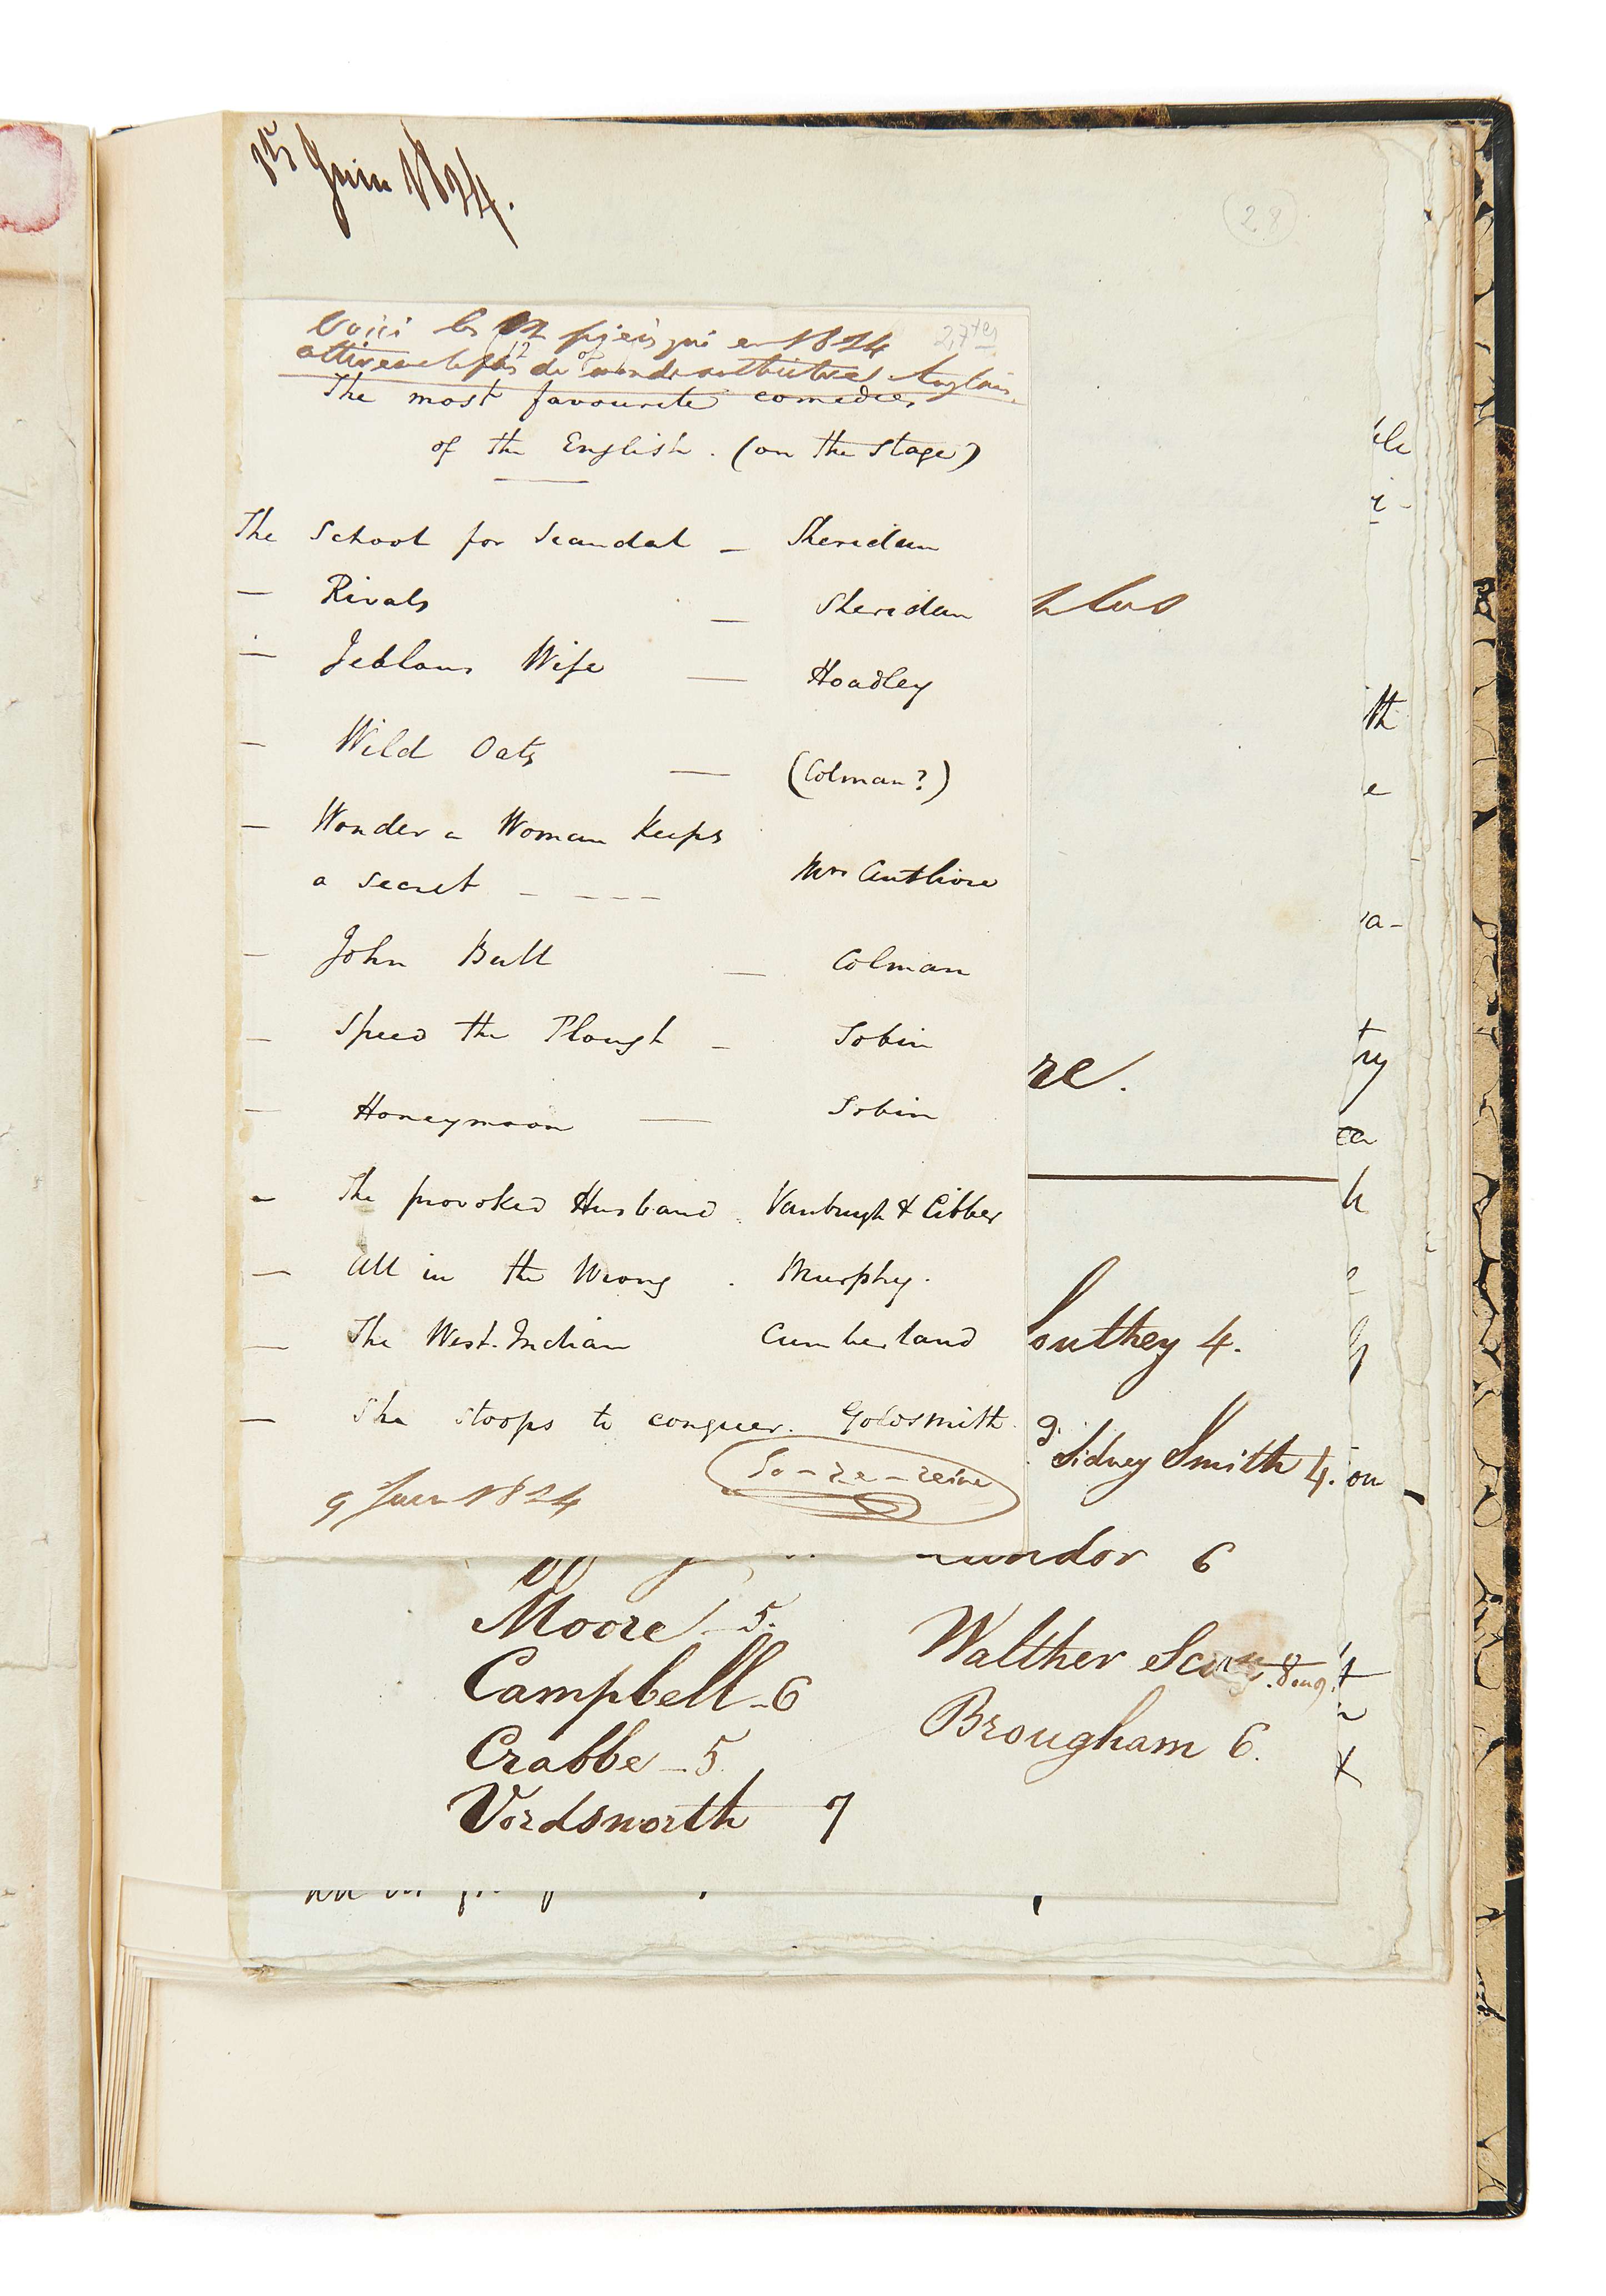 Juin 1824.
28
Voici les 12 pièces qui en 1824
attirent le plus de monde au théâtre Anglais.
The most favourite comedies
of the English. (on the stage)
The School for Scandal — Sheridan
— Rivals — Sheridan
— Jeblous Wife — Hoadley
— Wild Oats — (Colman?)
— Wonder a Woman keeps
a secret - - - - Mrs
— John Bull — Colman
— Speed the Plough — Tobin
— Honeymoon — Tobin
— The provoked Husband. Vanbrugh & Cibber
— All in the Wrong. Murphy.
— The West-Indian Cumberland
— She stoops to conquer. Goldsmith.
So-re-reine
9 Juin 1824
plus
re.
Southey 4.
Sidney Smith 4. on
Landor 6
Moore 5.
Campbell - 6
Crabbe - 5
Vordsworth 7
Walther
Brougham 6.